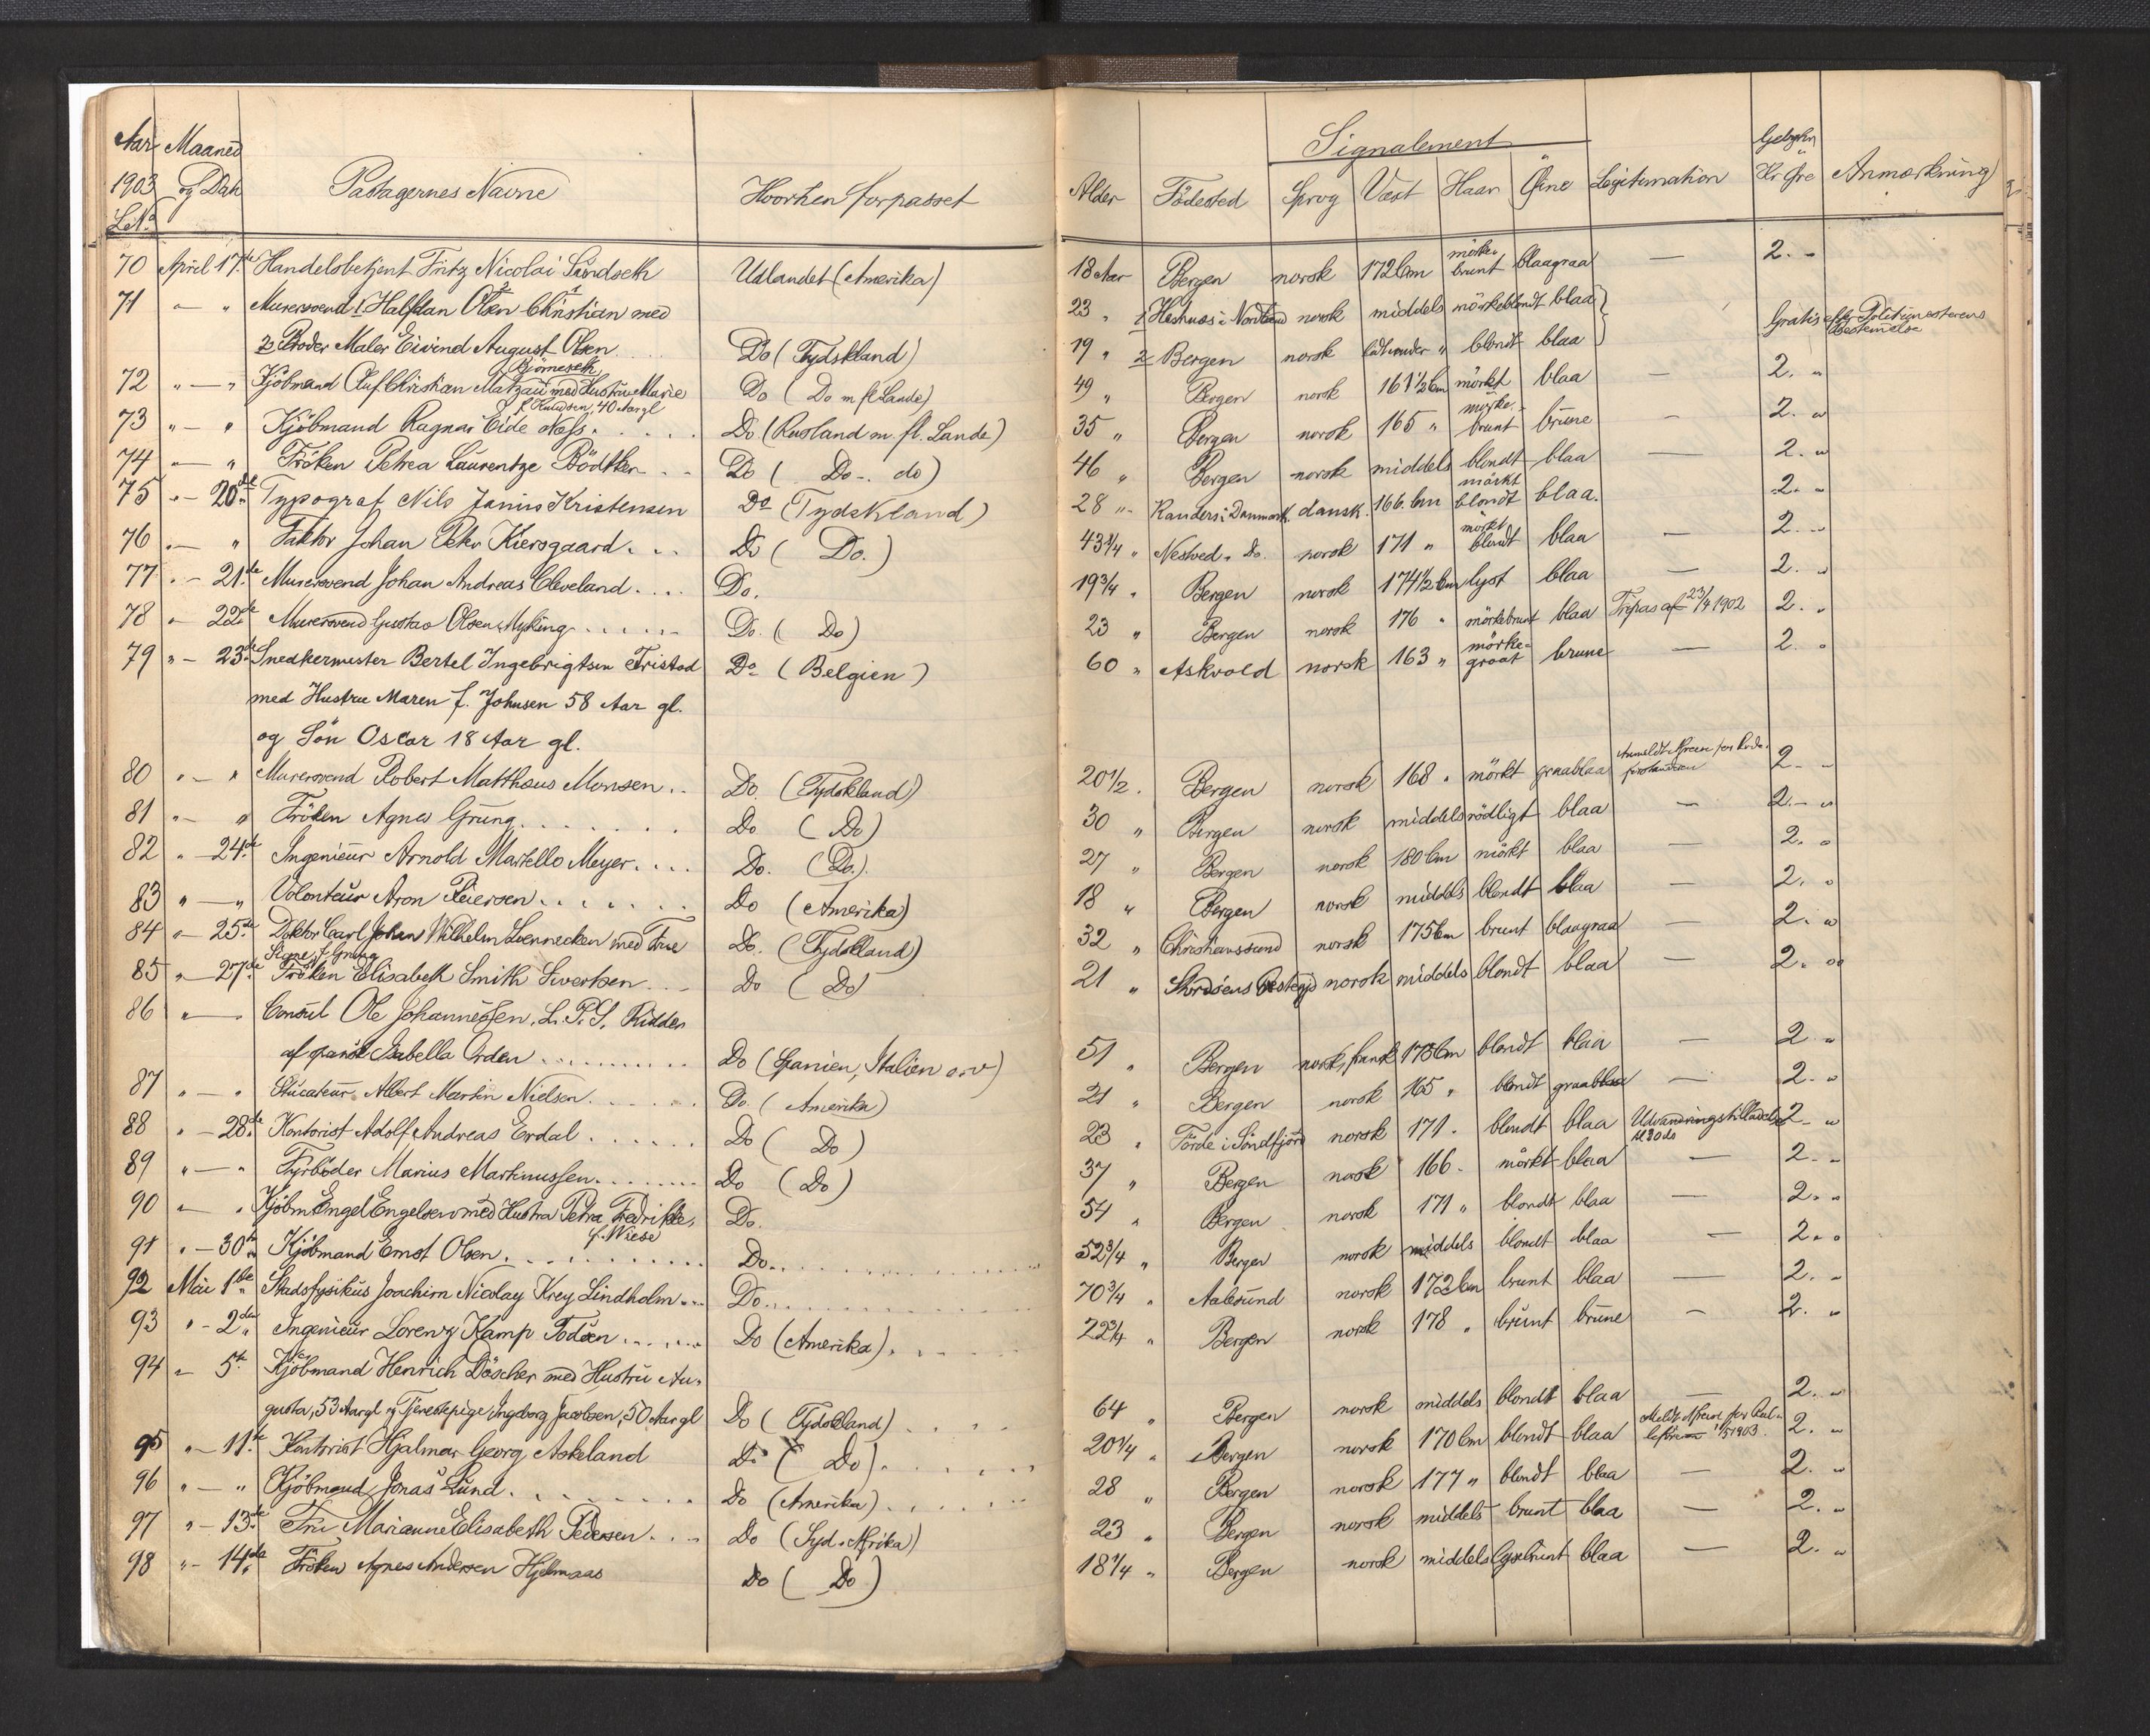 Aar Maaned Signalement Gebyhr
1903 og Dato Passagernes Navne Hvorhen forpasset Alder Födested Sprog Vext Haar Öine Legitimation Kr Öre Anmærkning
L.No.
70 April 17de Handelsbetjent Fritz Nicolai Sundseth Udlandet (Amerika) 18 Aar Bergen norsk 172 Cm mörkebrunt blaagraa — 2. "
71 — " Murersvend 1 Halfdan Olsen Christian med 23 " 1 i Nordland norsk middels mörkeblondt blaa Gratis efter Politimesterens Bestemelse
2 Broder Maler Eivind August Olsen Do (Tydskland) 19 " 2 Bergen norsk lidt under " blondt blaa
72 " — " Kjöbmand Oluf Christian Matzau med Hustru Marie Do (Do m fl Lande) 49 " Bergen norsk 161 1/2 Cm mörkt blaa — 2. "
f. Knudsen, 40 Aar gl
73 " — " Kjöbmand Ragnar Eide Næss Do (Rusland m. fl. Lande) 35 " Bergen norsk 165 " mörkebrunt brune — 2. "
74 " — " Fröken Petrea Laurentze Bödtker Do (Do. do) 46 " Bergen norsk middels blondt blaa — 2. "
75 " — 20de Typograf Nils Janius Kristensen Do (Tydskland) 28 " Randers i Danmark dansk 166 Cm mörkt blondt blaa. 2. "
76 " — " Faktor Johan Peter Kiersgaard Do (Do.) 43 3/4 " Nestved. Do. norsk 171 " mörkt blondt blaa — 2. "
77 " — 21de Murersvend Johan Andreas Cleveland Do. 19 3/4 " Bergen norsk 174 1/2 Cm lyst blaa — 2. "
78 " — 22de Murersvend Gustav Olsen Myking Do. (Do) 23 " Bergen norsk 176 " mörkebrunt blaa Fripas af 23/4 1902 2. "
79 " — 23de Snedkermester Bertel Ingebrigtsen Tristad Do (Belgien) 60 " Askvold norsk 163 " mörkegraat brune — 2. "
med Hustru Maren f. Johnsen 58 Aar gl.
og Sön Oscar 18 Aar gl.
80 " — " Murersvend Robert Matthæus Monsen Do. (Tydskland) 20 1/2 " Bergen norsk 168 " mörkt graablaa 2 "
81 " — " Fröken Agnes Grung Do (Do) 30 " Bergen norsk middels rödligt blaa — 2. "
82 " — 24de Ingenieur Arnold Martello Meyer Do. (Do.) 27 " Bergen norsk 180 Cm mörkt blaa — 2. "
83 " — " Volonteur Aron Peiersen Do (Amerika) 18 " Bergen norsk middels blondt blaa — 2. "
84 " — 25de Doktor Carl Johan Wilhelm Loennecken med Frue Do. (Tydskland) 32 " Christianssund norsk 175 Cm brunt blaagraa — 2. "
Signe f. Grung
85 " — 27de Fröken Elisabeth Smith Sivertsen Do (Do) 21 " Stordöens Prestegjd norsk middels blondt blaa — 2. "
86 " — " Consul Ole Johannessen, L. P. S. Ridder
af spansk Isabella Orden Do (Spanien, Italien osv) 51 " Bergen norsk, fransk 175 Cm blondt blaa — 2 "
87 " — " Stucateur Albert Martin Nielsen Do. (Amerika) 21 " Bergen norsk 165 " blondt graablaa — 2. "
88 " — 28de Kontorist Adolf Andreas Erdal Do (Do) 23 " Förde i Söndfjord norsk 171 " blondt blaa Udvandringstilladelse 2 "
89 " — " Fyrböder Marius Martinussen Do (Do) 37 " Bergen norsk 166 " mörkt blaa — 2. "
90 " — " Kjöbm Engel Engelsen med Hustru Petra Fredrikke, Do. 54 " Bergen norsk 171 " blondt blaa — 2. "
f. Wiese
91 " — 30te Kjöbmand Ernst Olsen Do 52 3/4 " Bergen norsk middels blondt blaa — 2. "
92 Mai 1ste Stadsfysikus Joachim Nicolay Krey Lindholm Do 70 3/4 " Aalesund norsk 172 Cm brunt blaa — 2. "
93 " — 2den Ingenieur Lorenz Kamp Todsen Do (Amerika) 22 3/4 " Bergen norsk 178 " brunt brune — 2. "
94 " 5te Kjöbmand Henrich Döscher med Hustru Au-
gusta, 53 Aar gl og Tjenestepige Ingeborg Jacobsen, 50 Aar gl Do (Tydskland) 64 " Bergen norsk middels blondt blaa — 2. "
95 " — 11te Kontorist Hjalmar Georg Askeland Do (Do) 20 1/4 " Bergen norsk 170 Cm blondt blaa 1/5 1903 2. "
96 " — " Kjöbmand Jonas Lund Do (Amerika) 28 " Bergen norsk 177 " blondt blaa — 2. "
97 " — 13de Fru Marianne Elisabeth Pedersen Do (Syd-Afrika) 23 " Bergen norsk middels brunt blaa — 2. "
98 " — 14de Fröken Agnes Andersen Hjelmaas Do (Do) 18 1/4 " Bergen norsk middels lysebrunt blaa — 2. "